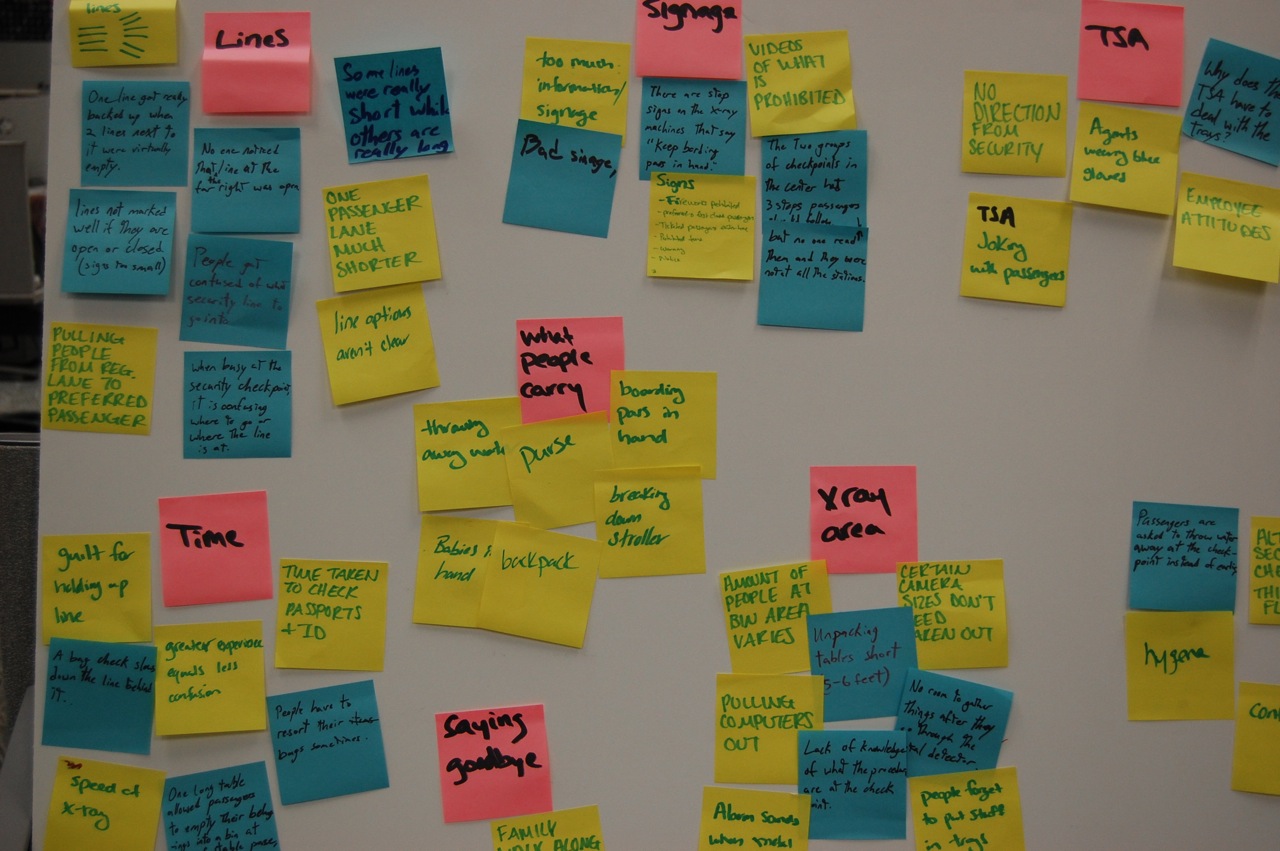 lines
Lines
One line got really
backed up when
2 lines next to
it were virtually
empty.
No one noticed
that the line at the
far right was open
Some lines
were really
short while
others are
really long
lines not marked
well if they are
open or closed.
(signs too small)
People got
confused of what
security line to
go into.
ONE
PASSENGER
LANE
MUCH
SHORTER
line options
aren't clear
PULLING
PEOPLE
FROM REG.
LANE TO
PREFERRED
PASSENGER
when busy at the
security checkpoint,
it is confusing
where to go or
where the line
is at.
Signage
too much
information/
signage
Bad sinage,
There are stop
signs on the x-ray
machines. That say
"Keep boarding
pass in hand."
VIDEOS
OF WHAT
IS
PROHIBITED
Signs
- Fireworks prohibited
The Two groups
of checkpoints in
the center has
3 steps passengers
but no one read
them and they were
not at all the stations.
TSA
NO
DIRECTION
FROM
SECURITY
Agents
wearing blue
gloves
Why does the
TSA have to
deal with the
trays?
TSA
Joking
with passengers
EMPLOYEE
ATTITUDES
what
people
carry
throwing
away
purse
boarding
pass in
hand
breaking
down
stroller
Babies
hand
backpack
Time
guilt for
holding up
line
TIME TAKEN
TO CHECK
PASSPORTS
+ ID
A bag check slows
down the line behind
it.
greater experience
equals less
confusion
People have to
resort their
bags sometimes.
speed of
x-ray
One long table
allowed passengers
to empty their belong
ings into a bin at
Saying
goodbye
FAMILY
WALK ALONG
xray
area
AMOUNT OF
PEOPLE AT
BIN AREA
VARIES
Unpacking
tables short
(5-6 feet)
CERTAIN
CAMERA
SIZES DON'T
PULLING
COMPUTERS
OUT
No room to gather
things after they
go through the
detector
Lack of knowledge
of what the procedures
are at the check
point.
Alarm sounds
when metal
people forget
to put stuff
in trays
Passengers are
asked to throw water
away at the check-
point instead of early
hygene